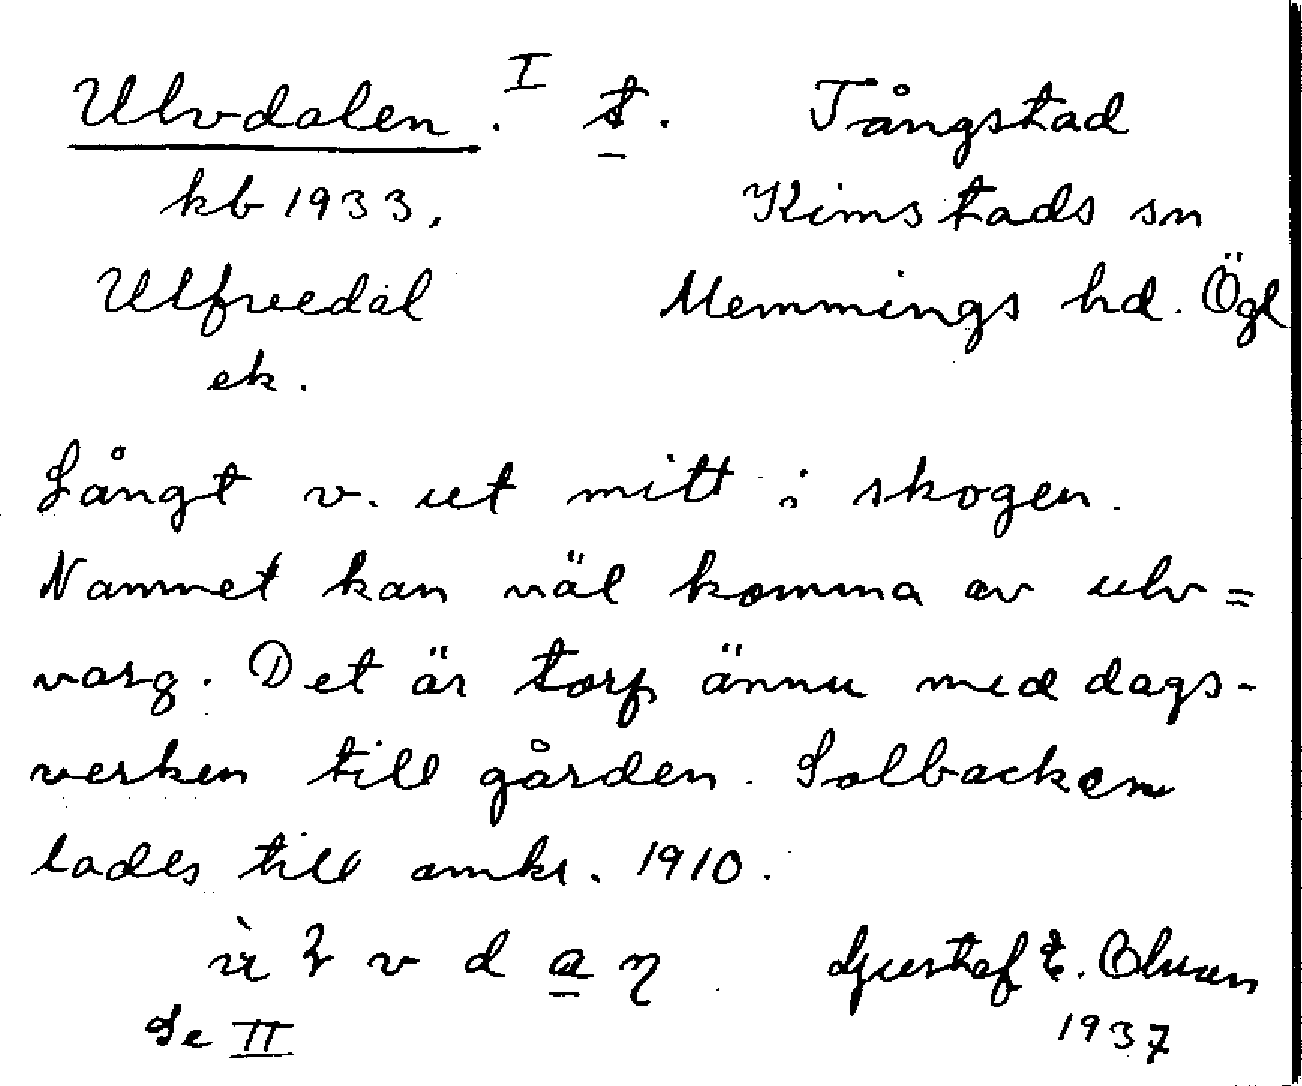 Ulvdalen. I t. Tångstad
kb 1933. Kimstads sn
Ulfvedal Memmings hd. Ögl
ek.
Långt v. ut mitt i skogen.
Namnet kan väl komma av ulv =
varg. Det är torp ännu med dags-
verken till gården. Solbacken
lades till omkr. 1910.
v d a Gustaf E. Olsson
Se II 1937